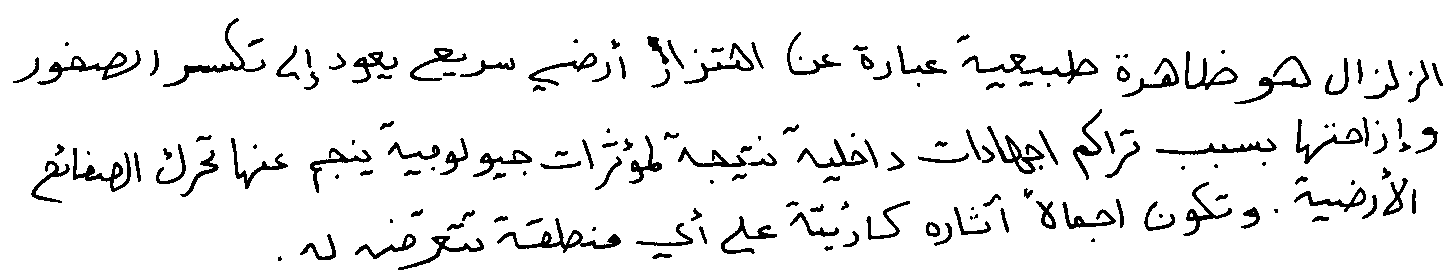 الزلزال هو ظاهرة طبيعية عبارة عن اهتزاز أرضي سريع يعود إلى تكسر الصخور
وإزاحتها بسبب تراكم اجهادات داخلية نتيجة لمؤثرات جيولوجية ينجم عنها تحرك الصفائح
الأرضية . وتكون اجمالاً آثاره كارثيّة على أي منطقة تتعرّض له .